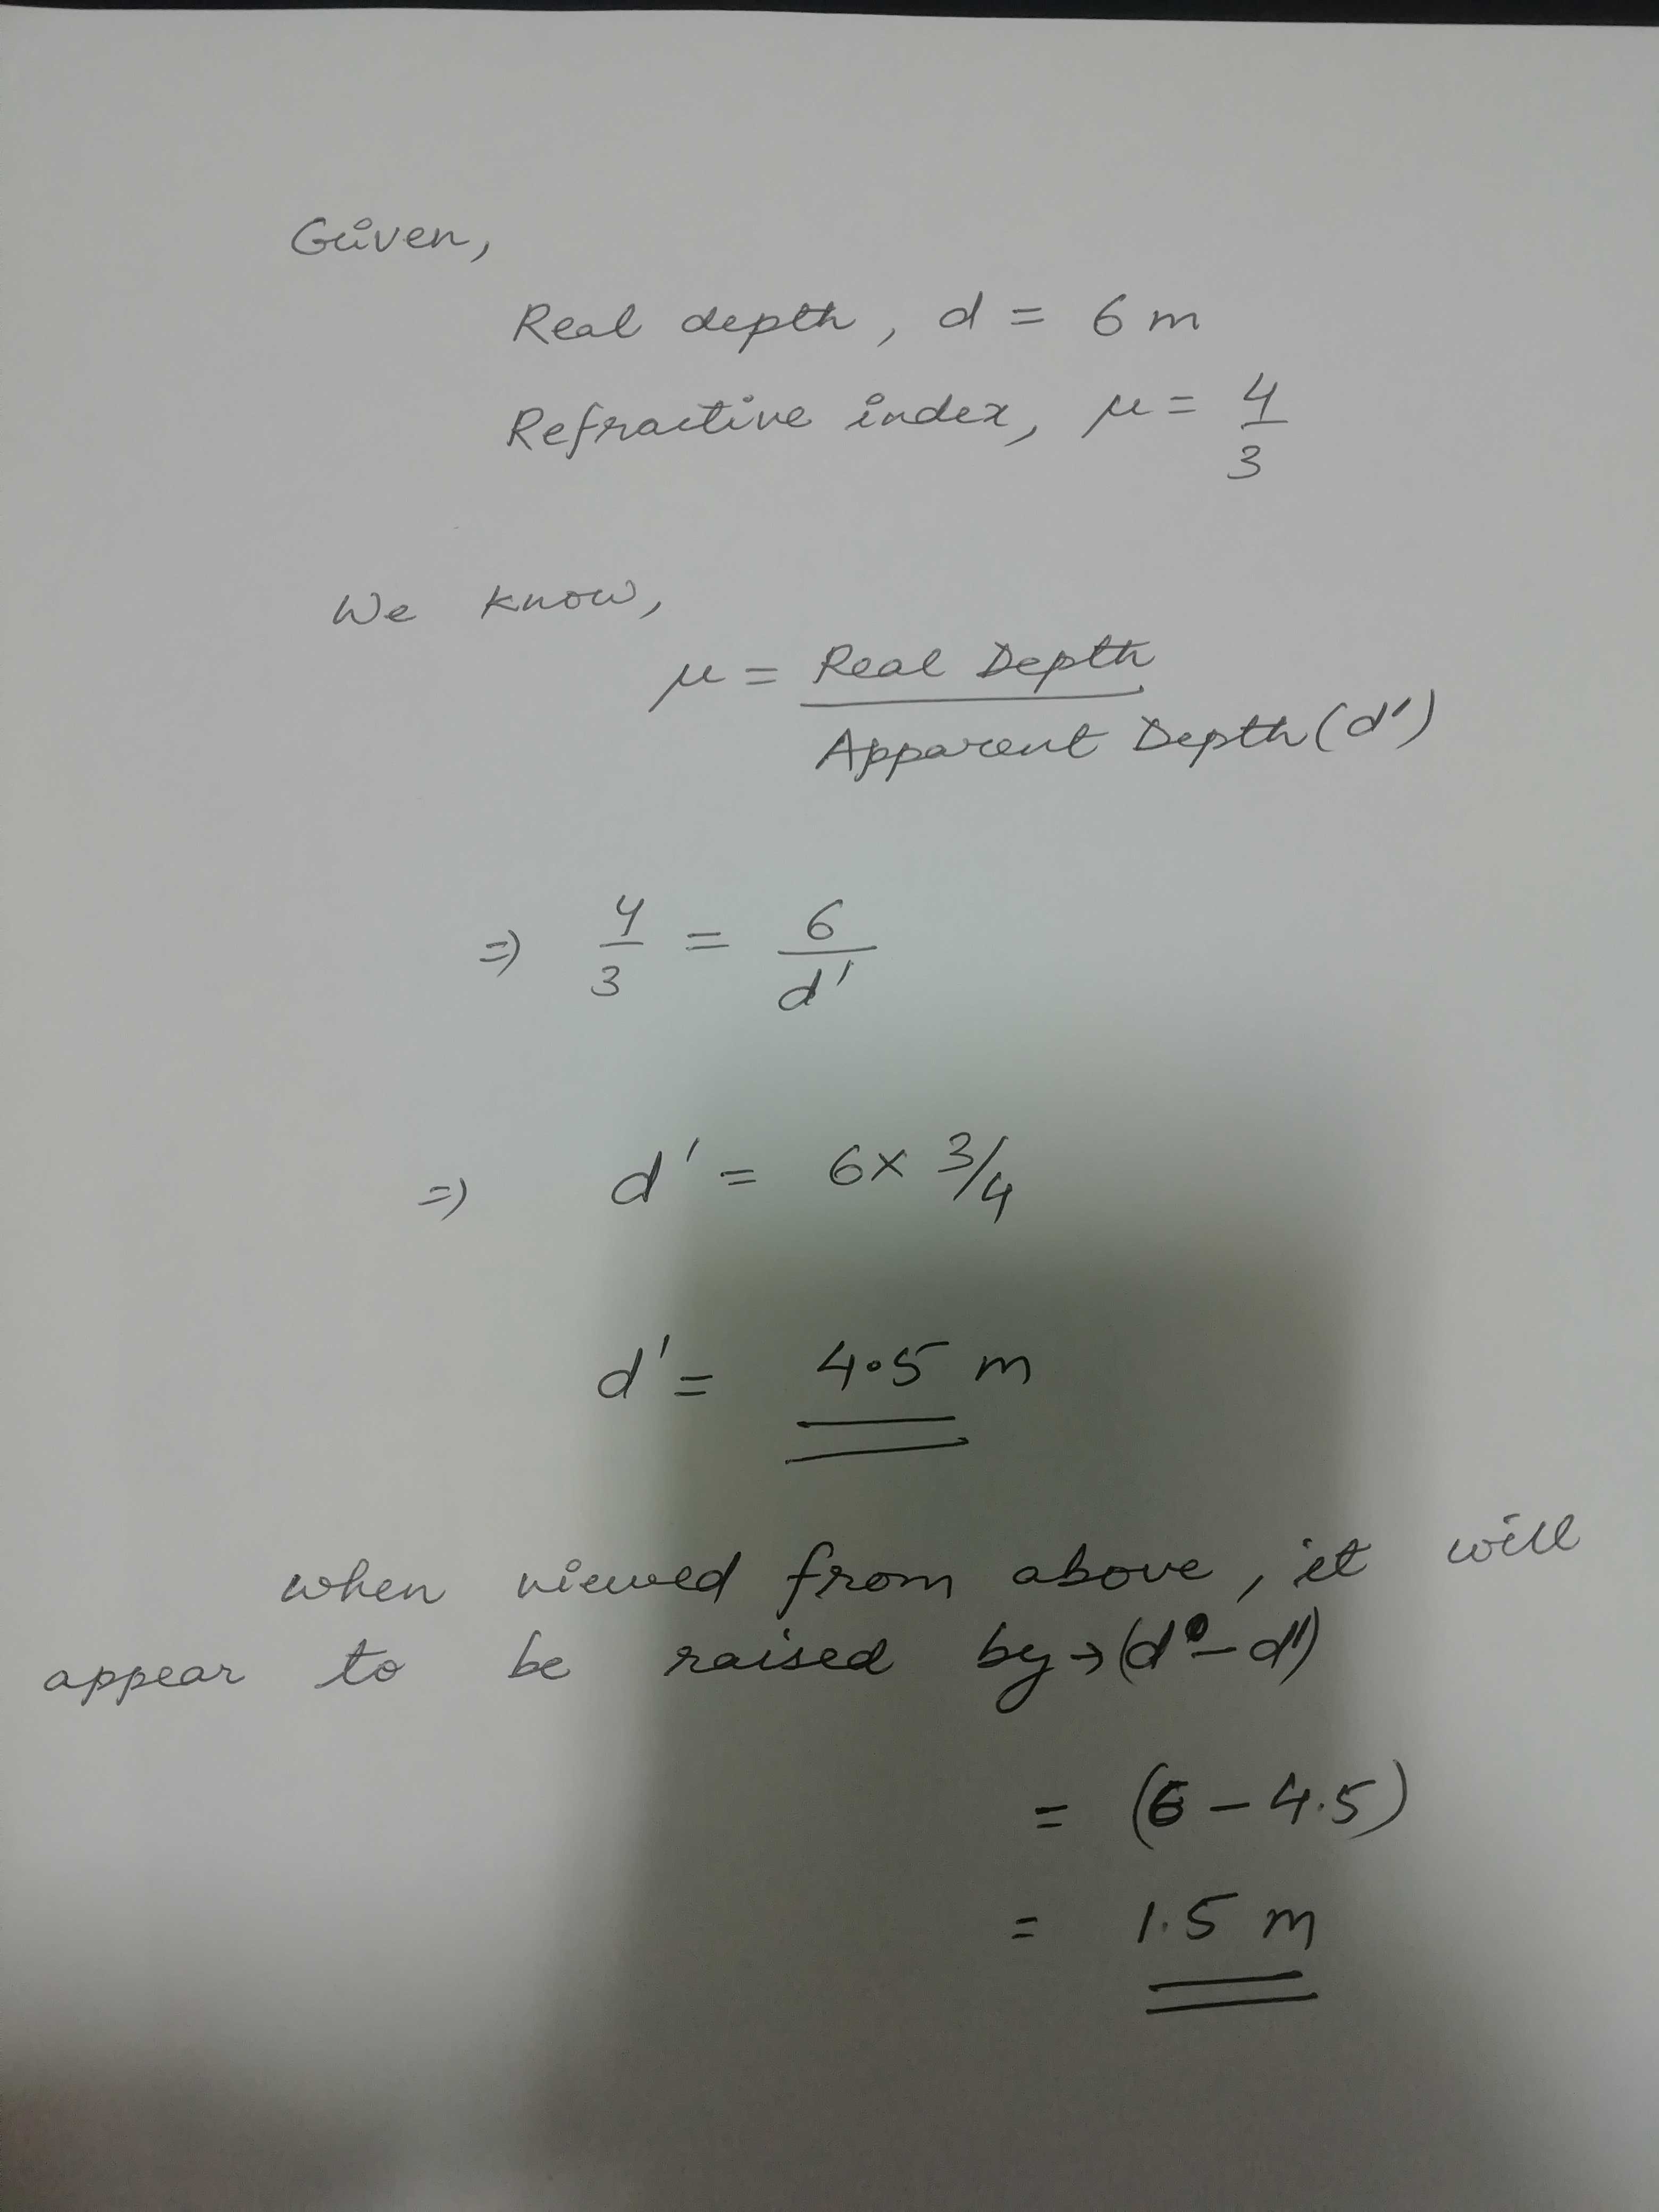 Given,
Real depth, d = 6 m
Refractive index, μ = 4/3
We know,
μ = Real Depth / Apparent Depth (d')
⇒ 4/3 = 6/d'
⇒ d' = 6 x 3/4
d' = 4.5 m
when viewed from above, it will
appear to be raised by → (d - d')
= (6 - 4.5)
= 1.5 m